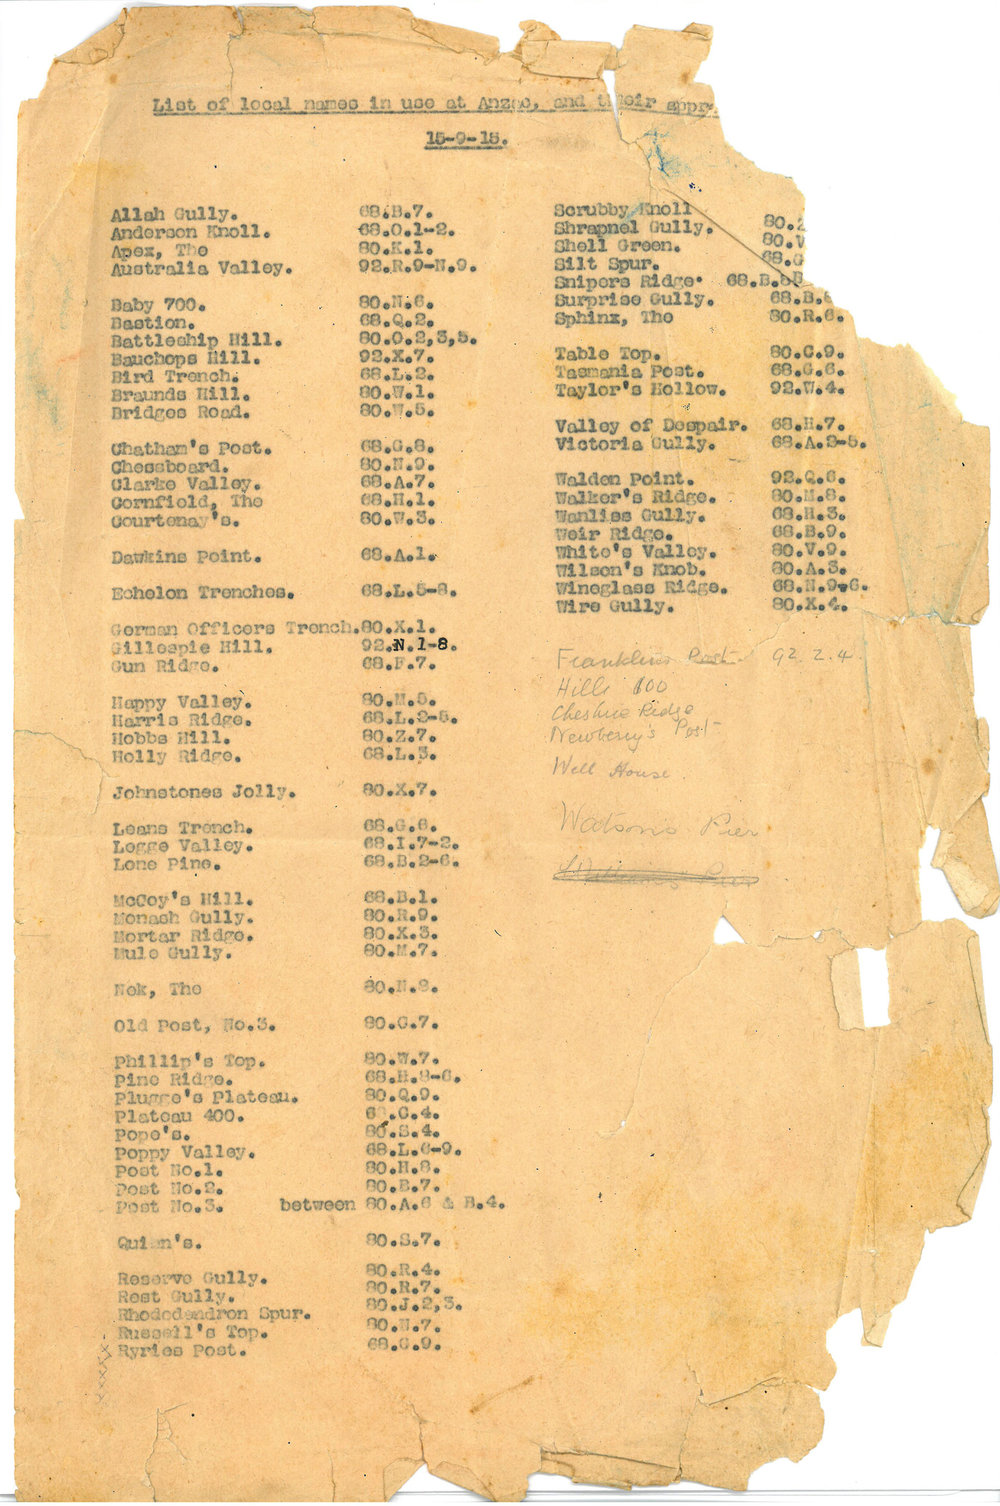 List of local names in use at Anzac, and their appr
15-9-15.
Allah Gully. 68.B.7.
Anderson Knoll. 68.O.1-2.
Apex, The 80.K.1.
Australia Valley. 92.R.9-N.9.
Baby 700. 80.N.6.
Bastion. 68.Q.2.
Battleship Hill. 80.O.2,3,5.
Bauchops Hill. 92.X.7.
Bird Trench. 68.L.2.
Braunds Hill. 80.W.1.
Bridges Road. 80.W.5.
Chatham's Post. 68.G.8.
Chessboard. 80.N.9.
Clarke Valley. 68.A.7.
Cornfield, The 68.H.1.
Courtenay's. 80.W.3.
Dawkins Point. 68.A.1.
Echelon Trenches. 68.L.5-8.
German Officers Trench. 80.X.1.
Gillespie Hill. 92.N.1-8.
Gun Ridge. 68.F.7.
Happy Valley. 80.M.5.
Harris Ridge. 68.L.2-5.
Hobbs Hill. 80.Z.7.
Holly Ridge. 68.L.3.
Johnstones Jolly. 80.X.7.
Leans Trench. 68.G.6.
Legge Valley. 68.I.7-2.
Lone Pine. 68.B.2-6.
McCoy's Hill. 68.B.1.
Monash Gully. 80.R.9.
Mortar Ridge. 80.X.3.
Mule Gully. 80.M.7.
Nek, The 80.N.9.
Old Post, No.3. 80.G.7.
Phillip's Top. 80.W.7.
Pine Ridge. 68.H.8-6.
Plugge's Plateau. 80.Q.9.
Plateau 400. 6 .C.4.
Pope's. 80.S.4.
Poppy Valley. 68.L.6-9.
Post No.1. 80.H.8.
Post No.2. 80.B.7.
Post No.3. between 80.A.6 & B.4.
Quinn's. 80.S.7.
Reserve Gully. 80.R.4.
Rest Gully. 80.R.7.
Rhododendron Spur. 80.J.2,3.
Russell's Top. 80.N.7.
Ryries Post. 68.G.9.
xxxxx
Scrubby Knoll
Shrapnel Gully. 80.
Shell Green. 80.V
Silt Spur. 68.G
Snipers Ridge. 68.B.
Surprise Gully. 68.B.
Sphinx, The 80.R.6.
Table Top. 80.C.9.
Tasmania Post. 68.G.6.
Taylor's Hollow. 92.W.4.
Valley of Despair. 68.H.7.
Victoria Gully. 68.A.2-5.
Walden Point. 92.Q.6.
Walker's Ridge. 80.M.8.
Wanliss Gully. 68.H.3.
Weir Ridge. 68.B.9.
White's Valley. 80.V.9.
Wilson's Knob. 80.A.3.
Wineglass Ridge. 68.N.9-6.
Wire Gully. 80.X.4.
Franklin's Post 92.Z.4
Hills 100
Cheshire Ridge
Newberry's Post
Well House
Watsons Pier